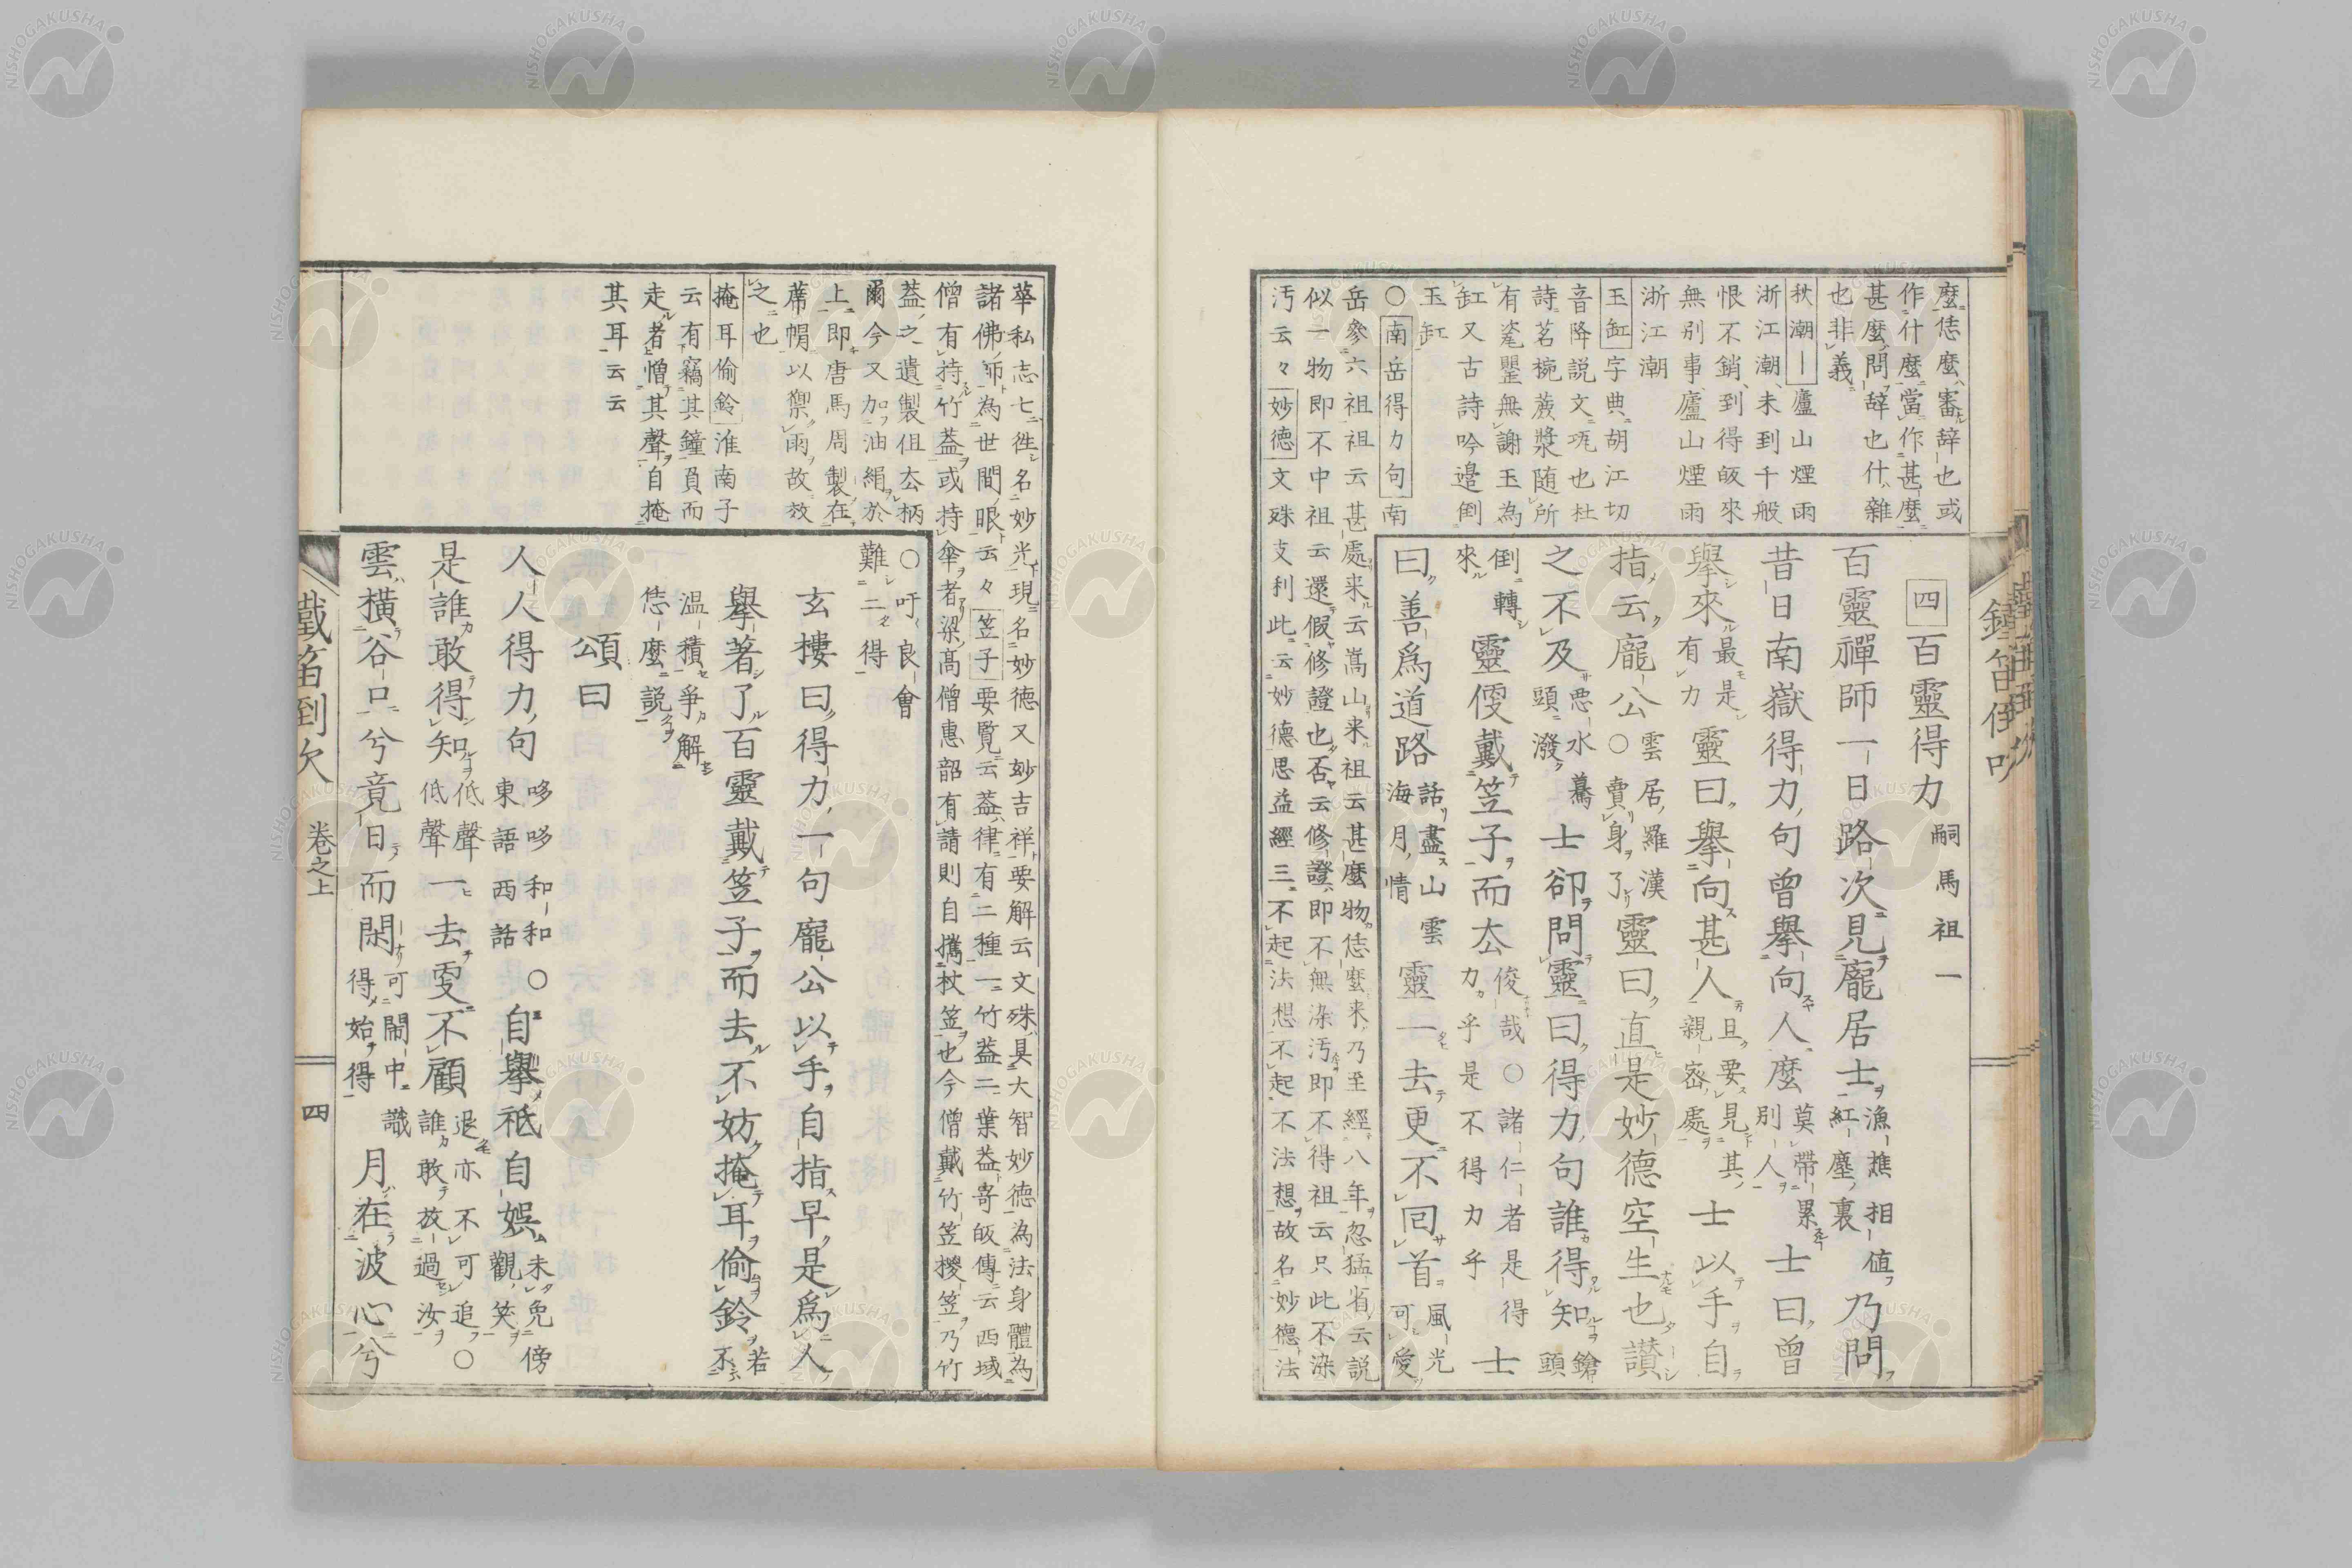 麼恁麼審辞也或
作什麼當作甚麼
甚麼問辞也什雜
也非義
秋潮｜廬山煙雨
浙江潮未到千般
恨不銷到得皈來
無別事廬山煙雨
浙江潮
玉缸字典胡江切
音降説文瓨也杜
詩茗椀蔗漿随所
有瓷罌無謝玉為
缸又古詩吟邉倒
玉缸
〇南岳得力句南
岳參六祖祖云甚處来云嵩山来祖云甚麼物恁麼来乃至經八年忽猛省云説
似一物即不中祖云還假修證也否云修證即不無染汚即不得祖云只此不染
汚云々妙德文殊支利此云妙德思益經三不起法想不起不法想故名妙德法
四百靈得力嗣馬祖一
百靈禪師一日路次見龐居士漁樵相値
紅塵裏乃問
昔日南嶽得力句曾擧向人麼莫帶累
別人士曰曾
擧來最是
有力靈曰擧向甚人且要見其
親宻處士以手自
指云龐公〇雲居羅漢
賣身了靈曰直是妙德空生也讃
之不及悪水驀
頭潑士卻問靈曰得力句誰得知鎗
頭
倒轉
來靈便戴笠子而厺俊哉〇諸仁者是得
力乎是不得力乎士
曰善爲道路話盡山雲
海月情靈一去更不回首風光
可愛
華私志七徃名妙光現名妙德又妙吉祥要解云文殊具大智妙德為法身體為
諸佛師為世間眼云々笠子要覧云葢律有二種一竹葢二葉葢寄皈傳云西域
僧有持竹葢或持傘者梁髙僧惠韶有請則自擕杖笠也今僧戴竹笠㯶笠乃竹
葢之遺製但厺柄
爾今又加油絹於
上即唐馬周製在
蓆帽以禦雨故放
之也
掩耳偷鈴淮南子
云有竊其鐘負而
走者憎其聲自掩
其耳云云
〇吁良會
難二得
玄樓曰得力一句龐公以手自指早是爲人
擧著了百靈戴笠子而去不妨掩耳偷鈴若
不
温積爭解
恁麼説
頌曰
人人得力句哆哆和和〇
東語西話自擧祗自娯未免傍
觀笑
是誰敢得知低聲
低聲一去更不顧退亦不可追〇
誰敢放過汝
雲横谷口兮竟日而閑可鬧中
得始得識月在波心兮
鐵笛倒吹 卷之上 四